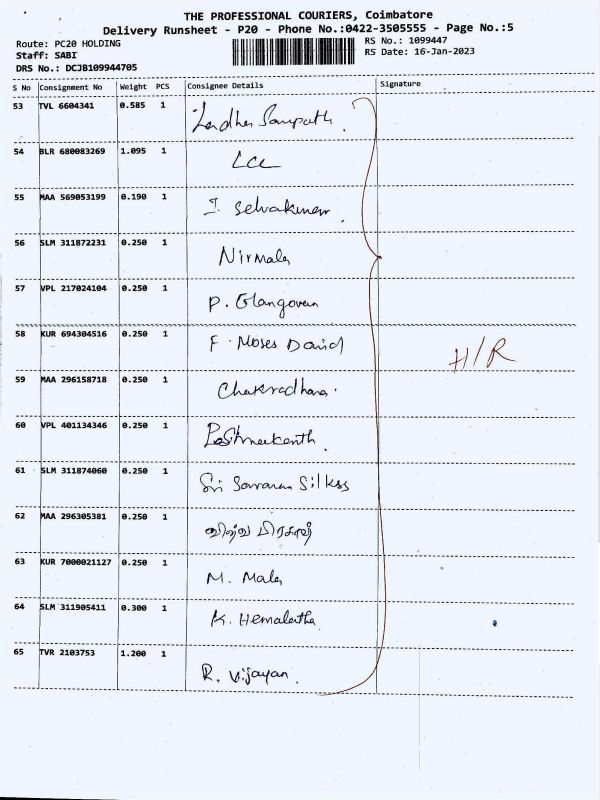 THE PROFESSIONAL COURIERS, Coimbatore
Delivery Runsheet - P20 - Phone No.:0422-3505555 - Page No.:5
Route: PC20 HOLDING
Staff: SABI
DRS No.: DCJB109944705
RS No.: 1099447
RS Date: 16-Jan-2023
S No Consignment No Weight PCS Consignee Details Signature
53 TVL 6604341 0.585 1 Sampath
54 BLR 680083269 1.095 1
55 MAA 569053199 0.190 1 I. Selvakumar
56 SLM 311872231 0.250 1 Nirmala
57 VPL 217024104 0.250 1 P. Elangovan
58 KUR 694304516 0.250 1 F. Moses David
H/R
59 MAA 296158718 0.250 1 Chakradhara
60 VPL 401134346 0.250 1
61 SLM 311874060 0.250 1 Sri Saravana Silkss
62 MAA 296305381 0.250 1
63 KUR 7000021127 0.250 1 M. Mala
64 SLM 311905411 0.300 1 K. Hemalatha
65 TVR 2103753 1.200 1 R. Vijayan